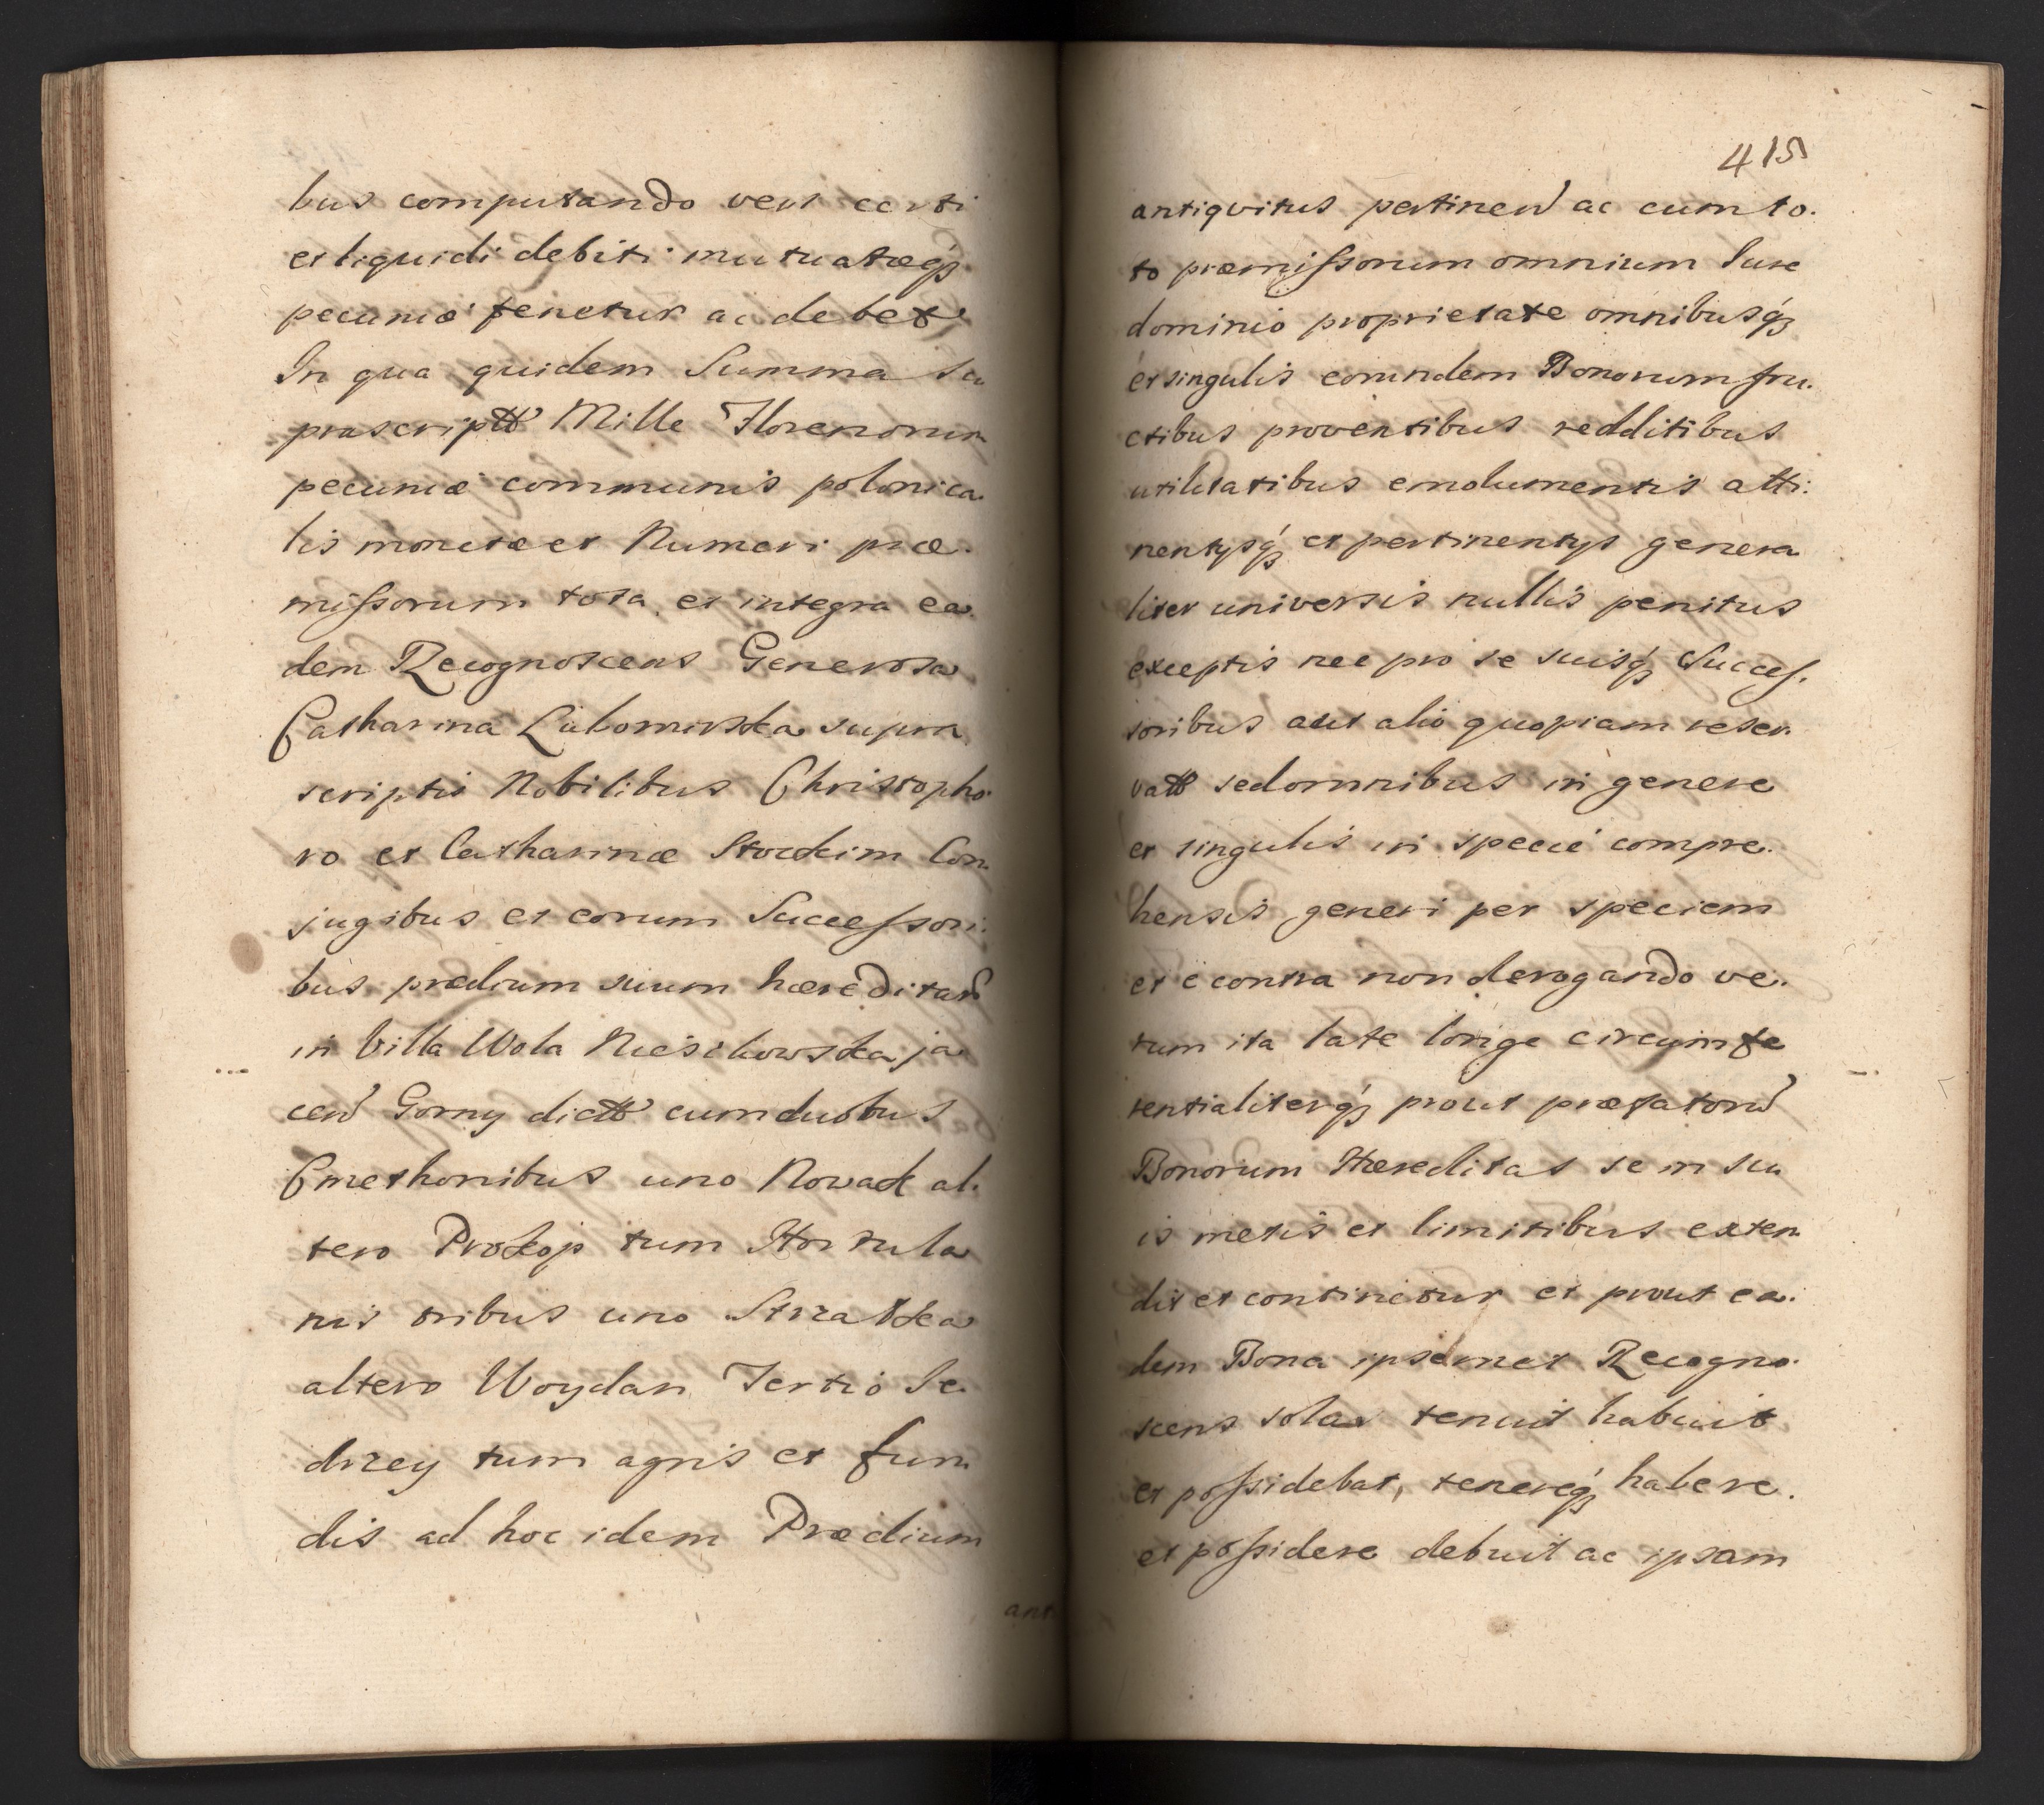 bus computando veri certi
et liquidi debiti mutuatæq́ꝫ
pecuniæ tenetur ac debet
In qua quidem Summa su
prascriptt Mille Florenorum
pecuniæ communis polonica
lis monetæ et Numeri præ
missorum tota et integra ea
dem Recognoscens Generosa
Catharina Lubomirska supra
scriptis Nobilibus Christopho
ro et Catharinæ Con
jugibus et eorum Successori
bus prædium suum hæreditar
in Villa Wola ja
cen Gorny dictt cum duobus
Cmethonibus uno Nowak al.
tero Prokop tum Hortula
nis tribus uno
altero Woydan Tertio Je
drzey tum agris et fun
dis ad hoc idem Prædium
ant
415
antiqvitus pertinen ac cum to.
to præmissorum omnium Jure
dominio proprietate omnibusq́ꝫ
et singulis eorundem Bonorum fru.
ctibus proventibus redditibus
utilitatibus emolumentis atti:
nentysq́ꝫ et pertinentys genera
liter universis nullis penitus
exceptis nec pro se suisq́ꝫ Succes.
soribus aut alio quopiam reser.
vatt sed omnibus in genere
et singulis in specie compre.
hensis generi per speciem
et e contra non derogando ve.
rum ita late longe circumfe
rentialiterq́ꝫ prout præfator
Bonorum Hæreditas se in su
is metis et limitibus exten
dit et continetur et prout ea.
dem Bona ipsamet Recogno.
scens sola tenuit habuit
et possidebat, tenereq́ꝫ habere.
et possidere debuit ac ipsam